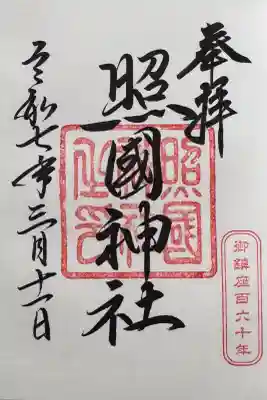 奉拝
照國神社
令和七年三月十一日
照國神社之印
御鎮座百六十年